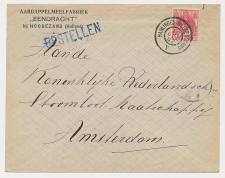 AARDAPPELMEELFABRIEK
„EENDRACHT"
bij HOOGEZAND (Holland)
BESTELLEN
Aande
Koninklijke Nederlandsche
Stoomboot Maatschappij
Amsterdam.